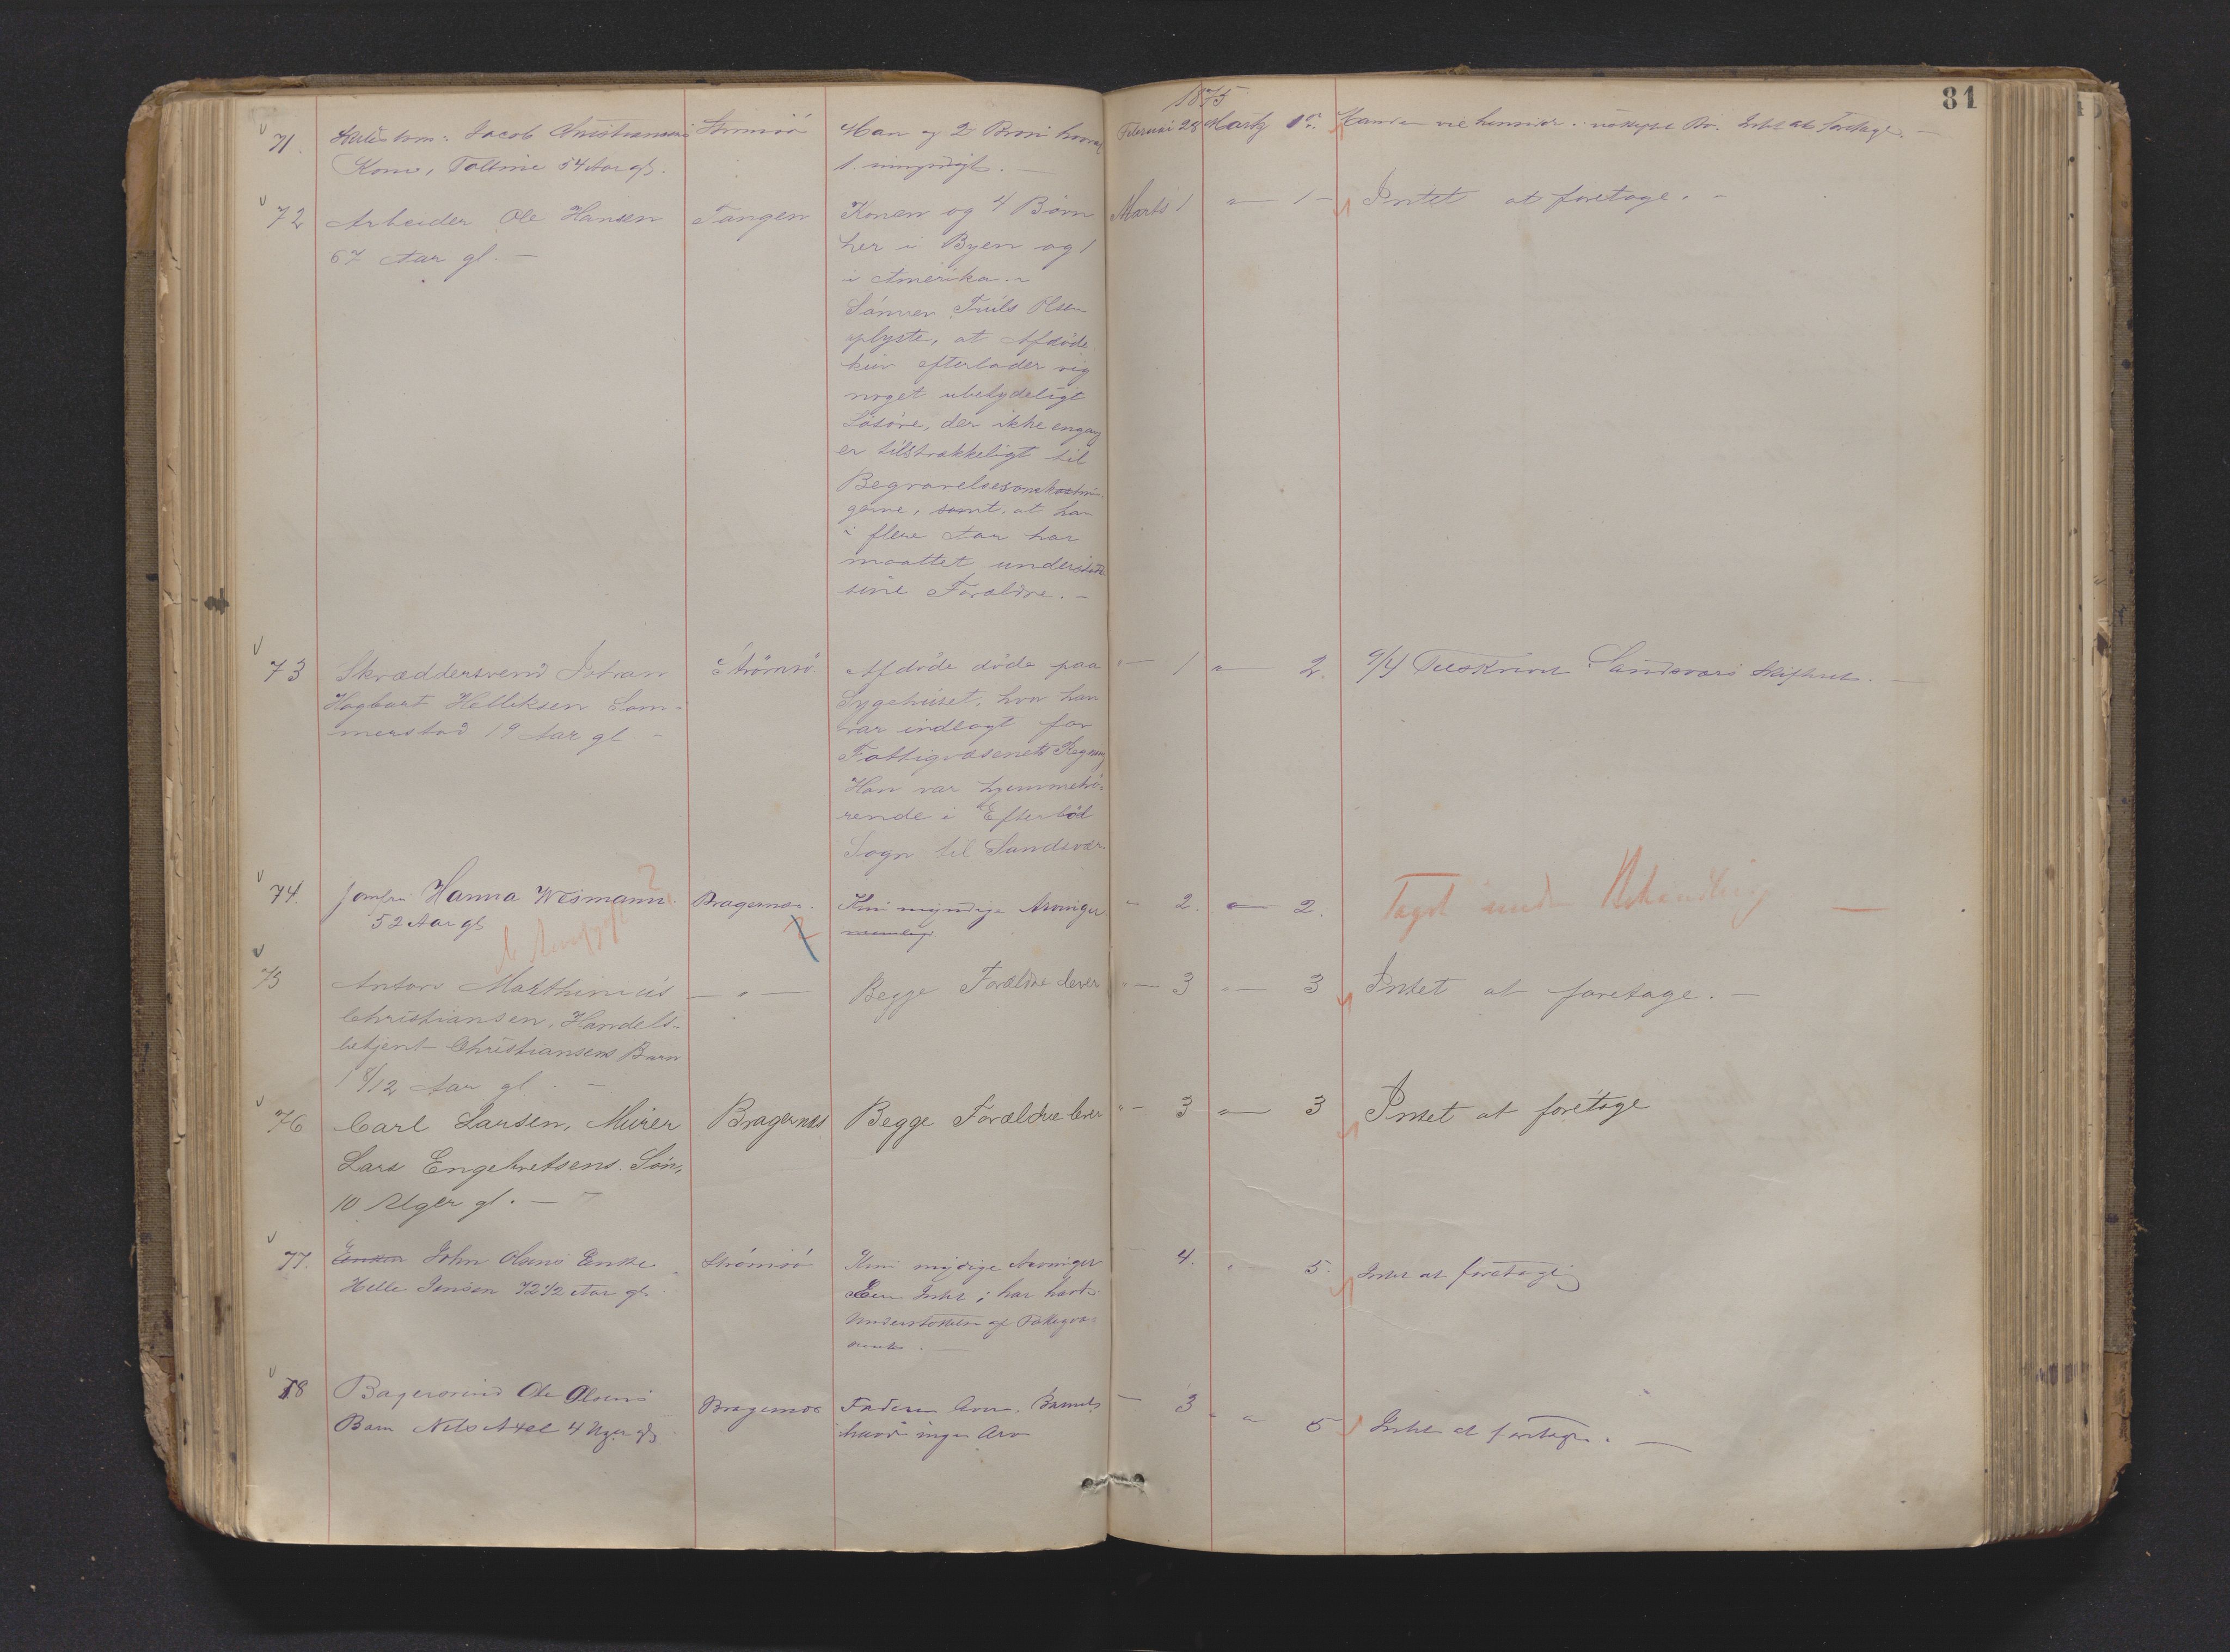 1875
81
71. Jacob Christiansens Strømsö Man og 2 Børn hvoraf Februar 28 Marts 1 Intet at foretage. —
Kone, 54 Aar gl. 1 umyndigt. —
72 Arbeider Ole Hansen Tangen Konen og 4 Börn Marts 1 " — 1 — Intet at foretage. —
67 Aar gl. — her i Byen og 1
i Amerika. —
Sönnen Truls Olsen
oplyste, at Afdöde
kun efterlader sig
noget ubetydeligt
Lösöre, der ikke engang
er tilstrækkeligt til
Begravelsesomkostnin-
gerne, samt, at han
i flere Aar har
maattet understötte
sine Forældre. —
73 Skræddersvend Johan Strömsö Afdöde döde paa " — 1 " — 2. 9/4 Tilskrevet Sandsværs Skifteret. —
Hagbart Helliksen Som- Sygehuset, hvor han
merstad 19 Aar gl. — var indlagt for
Fattigvæsenets Regning
Han var hjemmehö-
rende i Efteröd
Sogn til Sandsvær.
74. Jomfru Hanna Wesmann Bragernæs. Kun myndige Arvinger " 2. " — 2. Taget under Behandling —
52 Aar gl.
75 Antors Marthinius — " — Begge Forældre lever " — 3 " — 3 Intet at foretage. —
Christiansen, Handels-
betjent Christiansens Barn
1 8/12 Aar gl. —
76 Carl Larsen, Murer Bragernæs Begge Forældre lever " — 3 " — 3 Intet at foretage
Lars Engebretsens Sön,
10 Uger gl. —
77. Enken John Olsens Enke Strömsö Kun myndige Arvinger 4. " 5. Intet at foretage
Helle Jensen 72 1/2 Aar gl. Eier Intet; har havt
Understøttelse af Fattigvæ-
senet. —
78 Bagersvend Ole Olsens Bragernæs Faderen lever. Barnet — 3 " " 5 Intet at foretage. —
Barn Nils Axel 4 Uger gl. havde ingen Arv